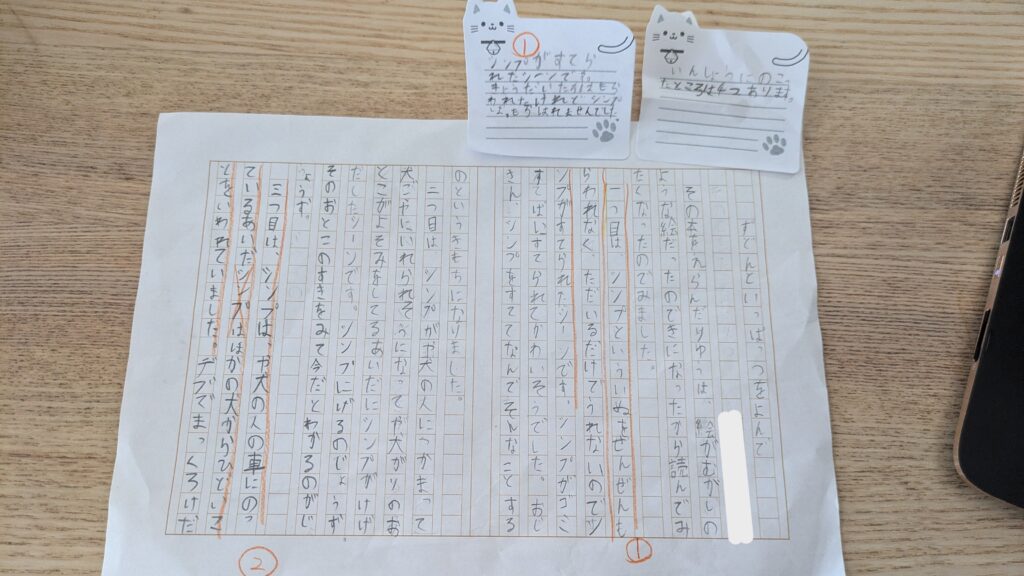 いんしょうにのこっ
たところは4つあります。
①
シンプがすてら
れたシーンです。
きょうだいたちはもら
われたけれどシンプ
は、もらわれませんでした
すどんといっぱっつをよんで
その本をえらんだりゆうは、絵がむかしの
ような絵だったのできになったから読んでみ
たくなったのでみました。
一つ目は、シンプといういぬはぜんぜんも
らわれなく、ただいるだけでうれないのでシ
ンプがすてられたシーンです。シンプがゴミ
すてばにすてられてかわいそうでした。おじ
さん、シンプをすててなんでそんなことする
のというきもちになりました。
二つ目は、シンプがや犬の人につかまって
犬ごやにいれられそうになってや犬がりのお
とこがよそみをしてるあいだにシンプがにげ
だしたシーンです。シンプにげるのじょうず。
そのおとこのすきをみて今だとわかるのがじ
ょうず。
三つ目は、シンプは、や犬の人の車にのっ
ているあいだシンプはほかの犬からひどいこ
とをいわれていました。デブでまっくろけだ
①
②